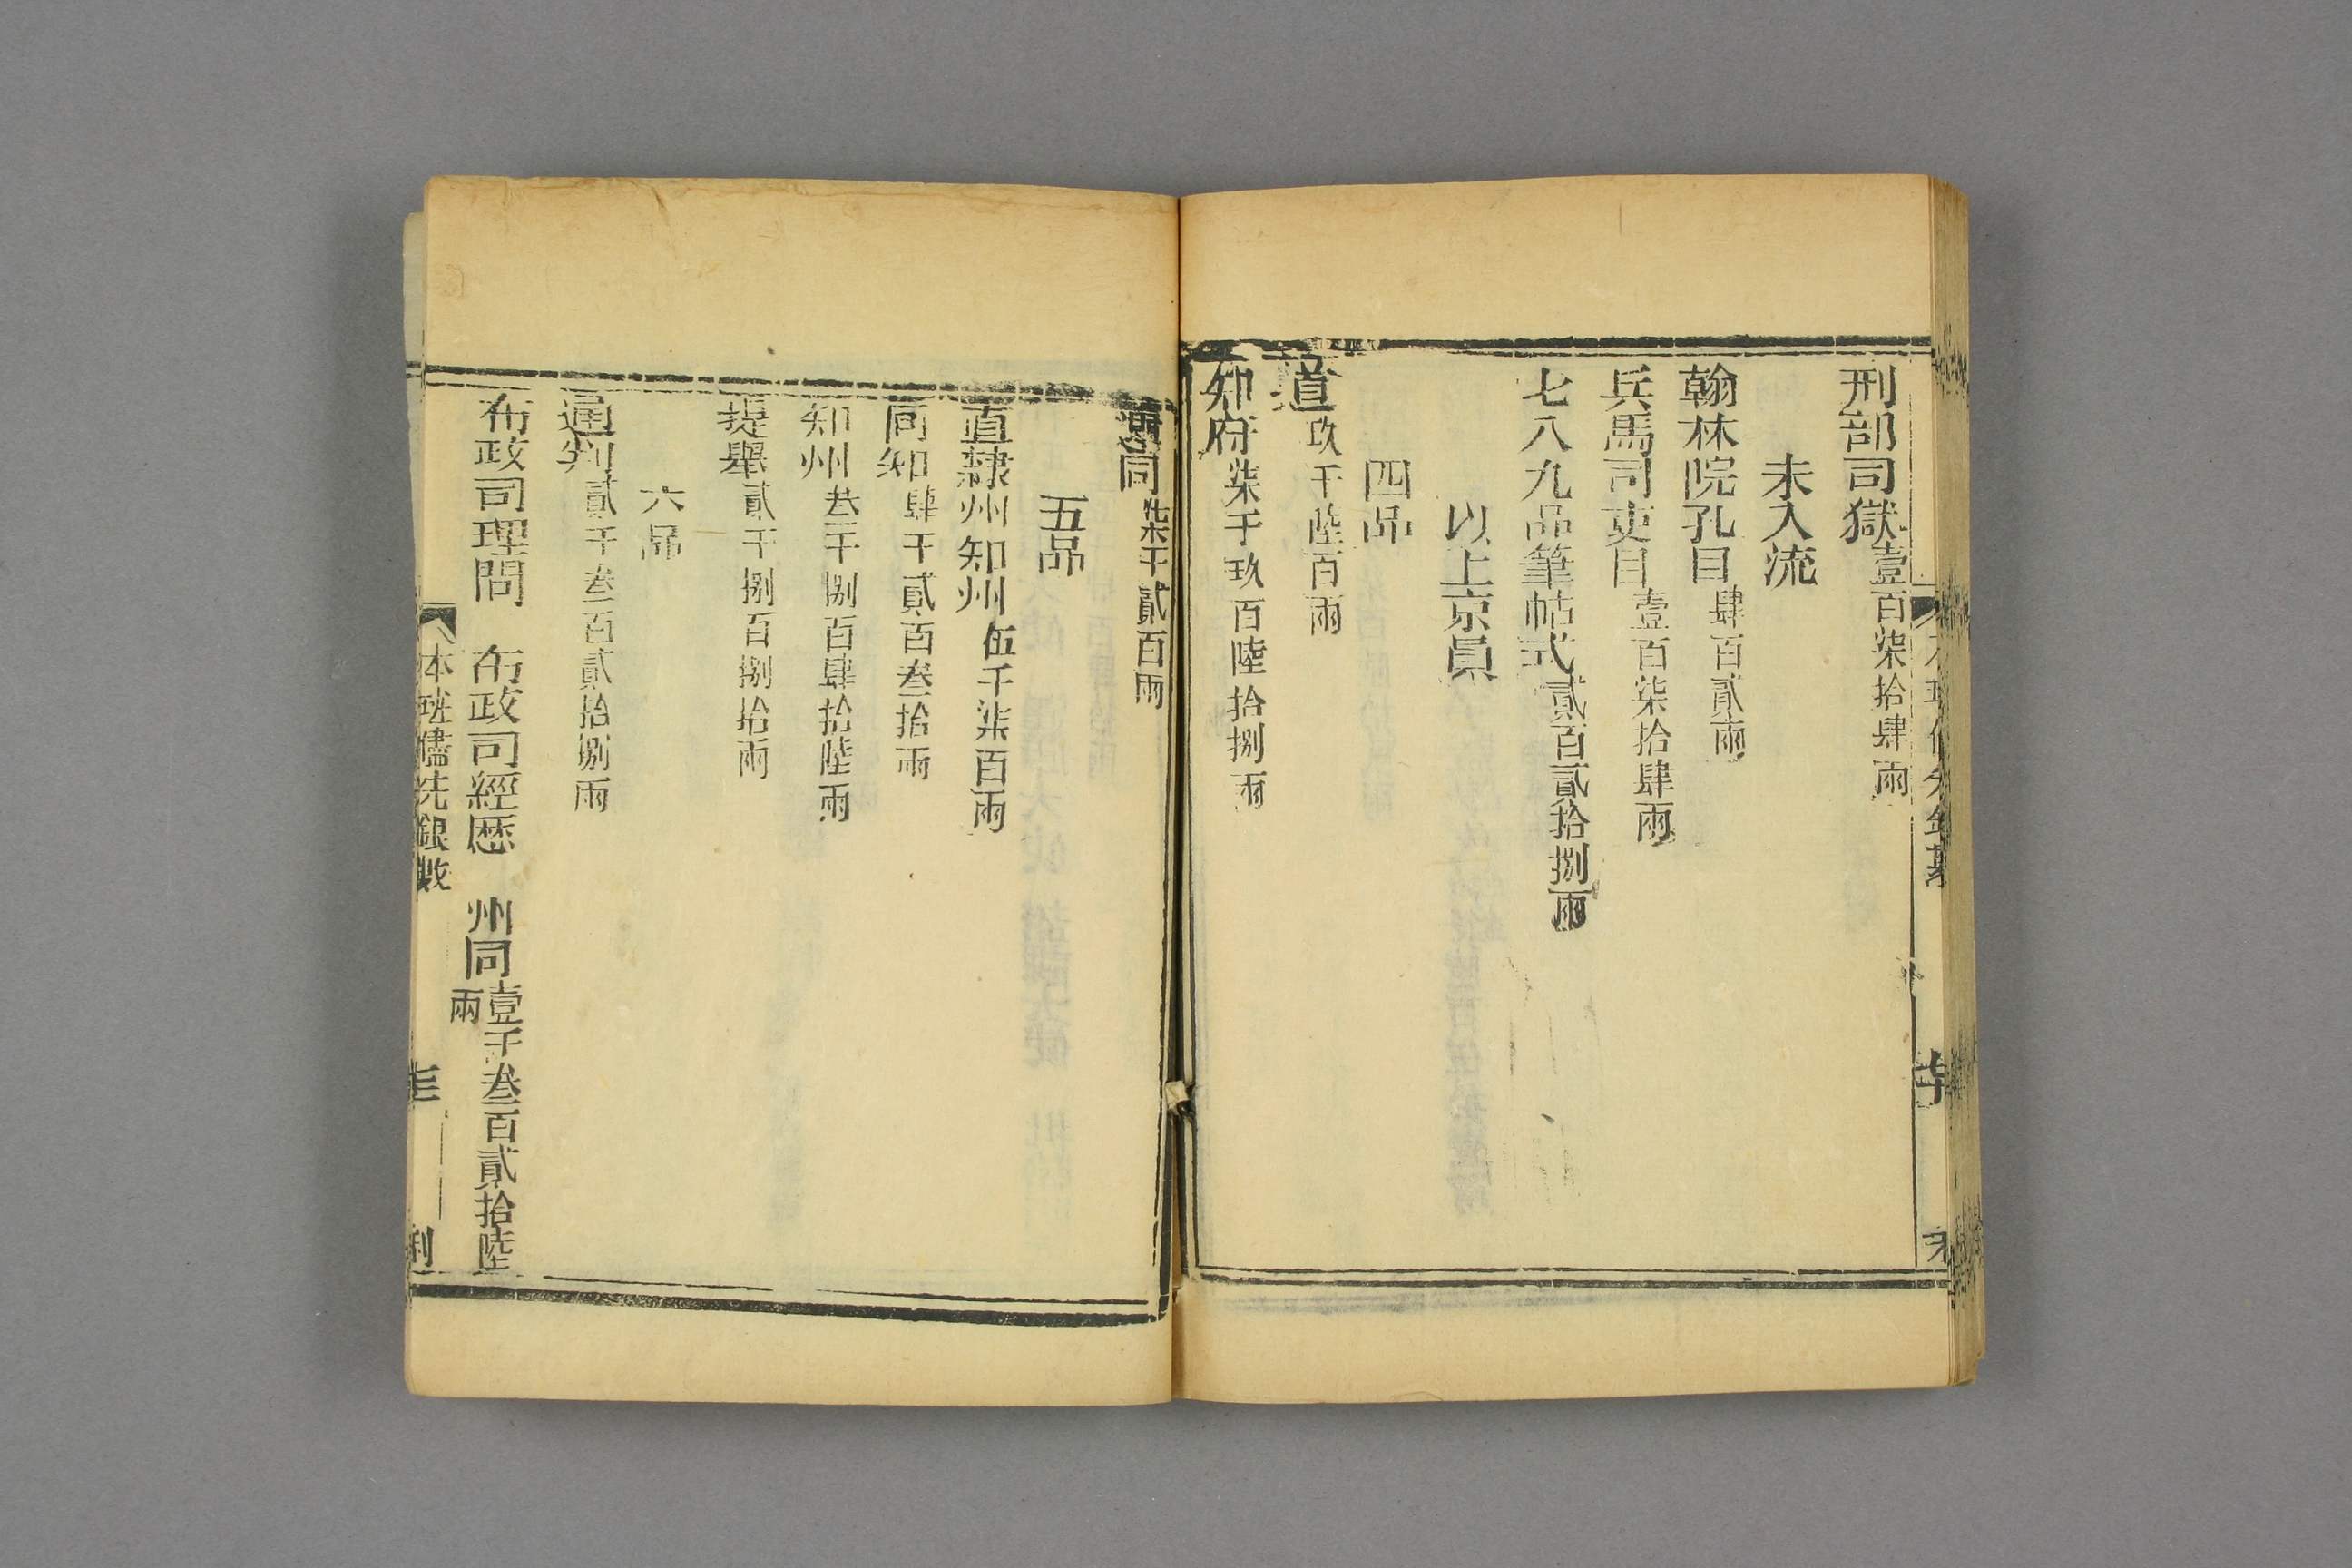 刑部司獄壹百柒拾肆兩
未入流
翰林院孔目肆百貳兩
兵馬司吏目壹百柒拾肆兩
七八九品筆帖式貳百貳拾捌兩
以上京員
四品
道玖千陸百兩
知府柒千玖百陸拾捌兩
同柒千貳百兩
五品
直隸州知州伍千柒百兩
同知肆千貳百叁拾兩
知州叁千捌百肆拾陸兩
提舉貳千捌百捌拾兩
六品
通判貳千叁百貳拾捌兩
布政司理問 布政司經歷 州同壹千叁百貳拾陸
兩
本班儘先銀數